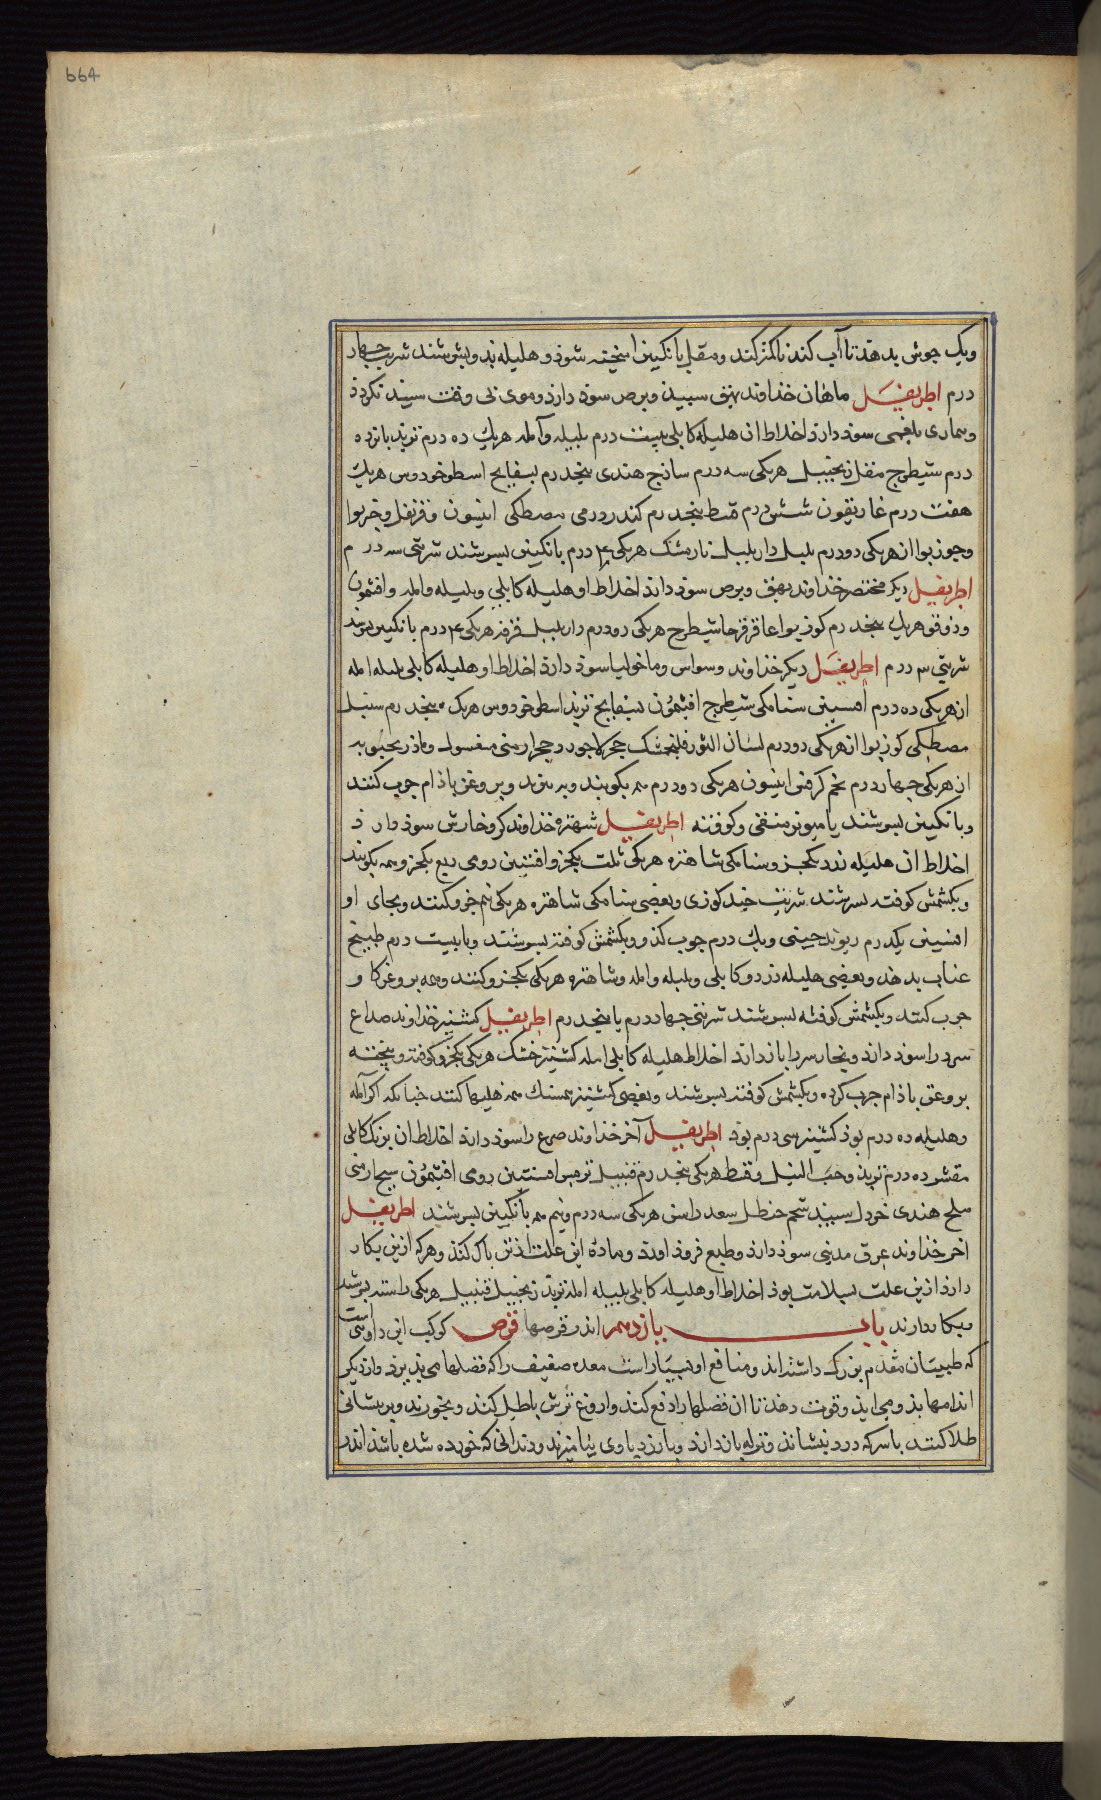 664
ویک جوش بدهند تا آب کندنا کمتر کند ومقل بانکبین امیخته شوذ و هلیله بذو بسرشند شربت چهار
درم اطریفل ماهان خذاوند بهق سبیذ وبرص سوذ دارذ وموی بی وقت سبیذ نکردذ
وبیماری بلغمی سوذ دارذ اخلاط ان هلیله کابلی بیست درم بلیله وآمله هریک ده درم تربذ پانزده
درم شیطرج مقل زنجبیل هریکی سه درم ساذج هندی پنجدرم بسفایج اسطوخودوس هریک
هفت درم غاریقون شش درم قسط پنجدرم کندر رومی مصطکی انیسون وقرنفل وخربوا
وجوزبوا از هریکی دودرم بلبل داربلبل نارمشک هریکی ۴ درم بانکبین بسرشند شربتی سه درم
اطریفل دیکر مختصر خذاوند بهق وبرص سوذ دارذ اخلاط او هلیله کابلی وبلیله وامله وافتیمون
ودوقو هریک پنجدرم کوزبوا عاقرقرحا شیطرج هریکی دودرم داربلبل قرفه هریکی ۴ درم بانکبین بسرشند
شربتی ۳ درم اطریفل دیکر خذاوند وسواس وماخولیا سوذ دارذ اخلاط او هلیله کابلی بلیله امله
از هریکی ده درم افسنتین سنامکی شیطرج افتیمون بسفایج تربذ اسطوخودوس هریک پنجدرم سنبل
مصطکی کوزبوا از هریکی دودرم لسان الثور فلنجمشک حجر لاجورد حجر ارمنی مغسول وباذرنجبویه
از هریکی چهار درم تخم کرفس انیسون هریکی دودرم همه بکوبند وببیزند وبروغن باذام چرب کنند
وبانکبین بسرشند یا میویز منقی وکوفته اطریفل شهتره خذاوند کر وخارش سوذ دارذ
اخلاط ان هلیله زرد یکجزو سنامکی شاهتره هریکی ثلث یکجزو افسنتین رومی ربع یکجزو همه بکوبند
وبکشمش کوفته بسرشند شربت چند کوزی وبعضی سنامکی شاهتره هریکی نیم جزو کنند وبجای او
افسنتین یکدرم ریوند چینی ویک درم چوب کذر وبکشمش کوفته بسرشند وبا بیست درم طبیخ
عناب بدهند وبعضی هلیله زرد وکابلی وبلیله وامله وشاهتره هریکی یکجزو کنند وهمه بروغن کاو
چرب کنند وبکشمش کوفته بسرشند شربتی چهاردرم یا پنجدرم اطریفل کشنیز خذاوند صداع
سرد را سوذ دارذ وبخار سر را باز دارذ اخلاط هلیله کابلی امله کشنیز خشک هریکی یکجزو کوفته وپیخته
بروغن باذام چرب کرده وبکشمش کوفته بسرشند وبعضی کشنیز همسنک همه هلیلها کنند چنانکه اکر آمله
وهلیله ده درم بوذ کشنیز سی درم بوذ اطریفل آخر خذاوند صرع را سوذ دارذ اخلاط ان برنک کابلی
مقشر ده درم تربذ وحب النیل وقسط هریکی پنجدرم قنبیل ترمس افسنتین رومی افتیمون
ملح هندی خردل سبید شحم حنظل سعد راسن هریکی سه درم ونیم همه بانکبین بسرشند اطریفل
اخر خذاوند عرق مدینی سوذ دارذ وطبع فروذ اورذ وماده این علت از تن پاک کنذ وهرکه ازین بکار
دارذ ازین علت بسلامت بوذ اخلاط او هلیله کابلی بلیله امله تربذ زنجبیل قنبیل هریکی راستد بسرشند
وبکار دارند باب یازدهم اندر قرصها قرص کوکب این داروئی است
که طبیبان مقدم بزرک داشته‌اند ومنافع او بسیار است معده ضعیف را که فضلها می‌بذیرذ واز دیکر
اندامها بذو می‌ایذ وقوت دهذ تا ان فضلها را دفع کند واروغ ترش باطل کند وبخورند وبر پیشانی
طلا کنند با سرکه درد بنشاند ونزله باز دارذ وبارزد با وی بیامیزند ودندانی که خورده شده باشذ اندر